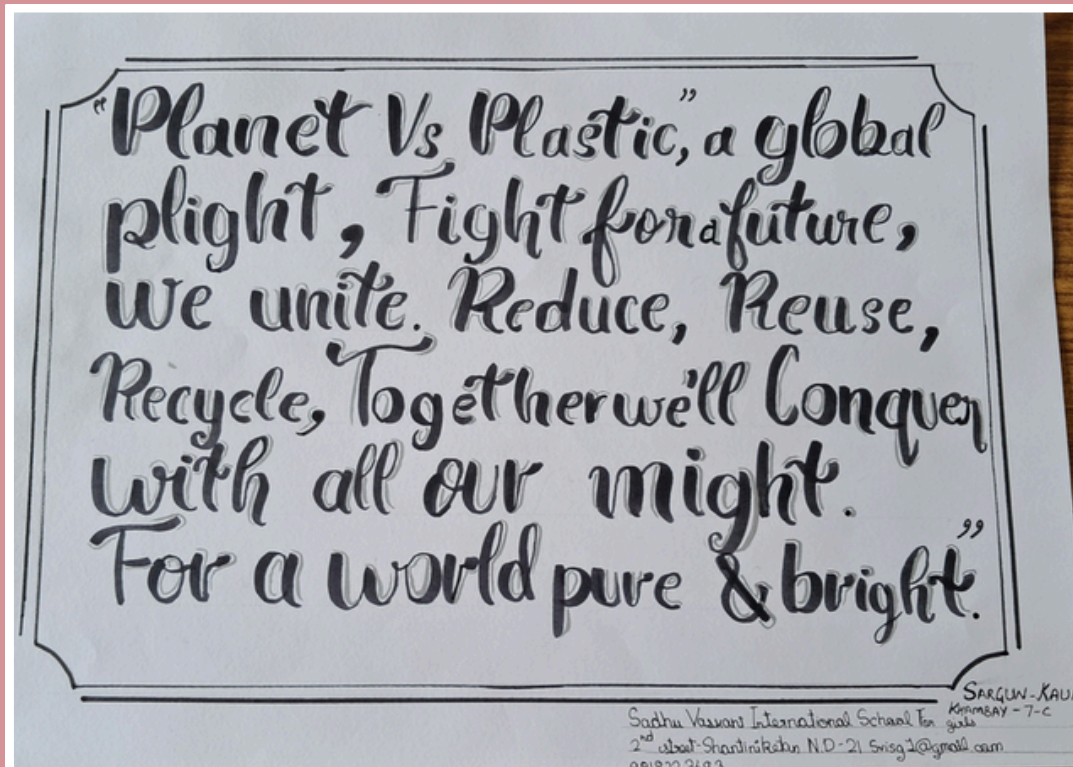 "Planet Vs Plastic," a global
plight, Fight for a future,
we unite. Reduce, Reuse,
Recycle, Together we'll Conquer
with all our might.
For a world pure & bright."
SARGUN-KAU
KHAMBAY-7-C
Sadhu Vasvani International School For girls
2nd street-Shantiniketan N.D-21 Svisg1@gmail.com